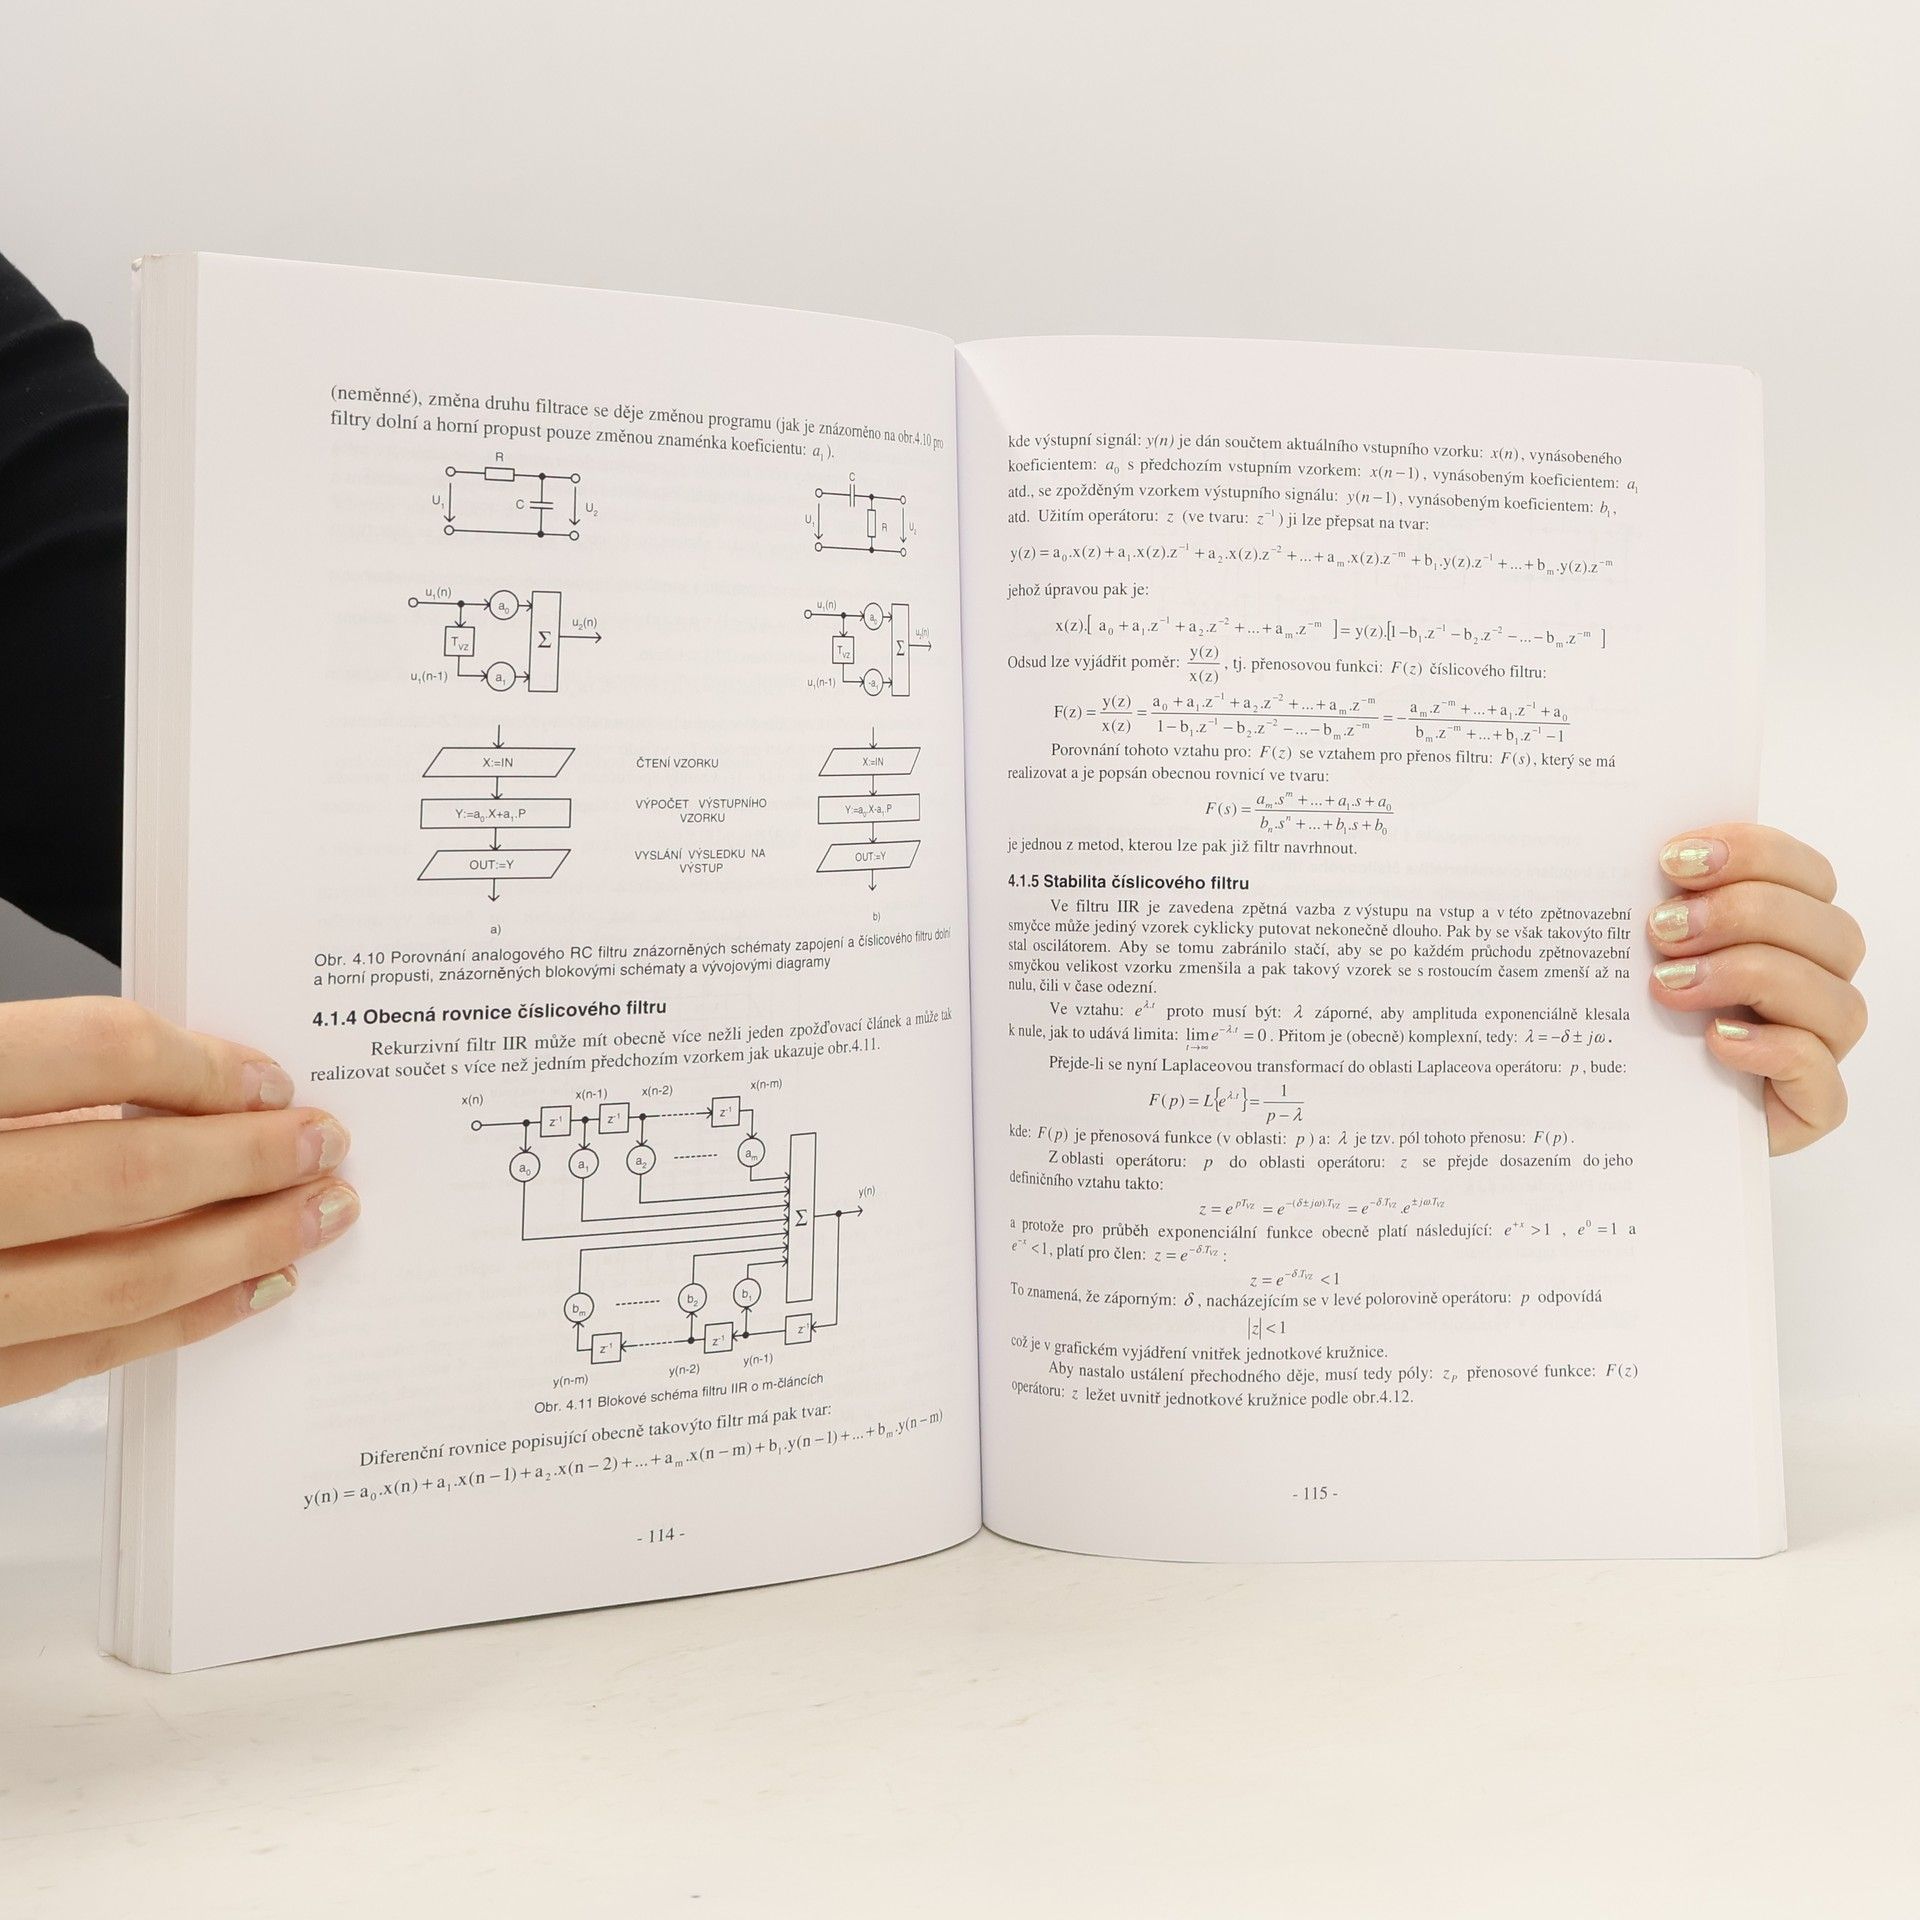 (neměnné), změna druhu filtrace se děje změnou programu (jak je znázorněno na obr.4.10 pro
filtry dolní a horní propust pouze změnou znaménka koeficientu: a₁).
R
C
U₁
U₂
C
R
U₁
U₂
u₁(n)
a₀
T_VZ
Σ
u₂(n)
u₁(n-1)
a₁
u₁(n)
a₀
T_VZ
Σ
u₂(n)
u₁(n-1)
-a₁
X:=IN
ČTENÍ VZORKU
X:=IN
Y:=a₀.X+a₁.P
VÝPOČET VÝSTUPNÍHO
VZORKU
Y:=a₀.X-a₁.P
OUT:=Y
VYSLÁNÍ VÝSLEDKU NA
VÝSTUP
OUT:=Y
a)
b)
Obr. 4.10 Porovnání analogového RC filtru znázorněných schématy zapojení a číslicového filtru dolní
a horní propusti, znázorněných blokovými schématy a vývojovými diagramy
4.1.4 Obecná rovnice číslicového filtru
Rekurzivní filtr IIR může mít obecně více nežli jeden zpožďovací článek a může tak
realizovat součet s více než jedním předchozím vzorkem jak ukazuje obr.4.11.
x(n)
x(n-1)
x(n-2)
x(n-m)
z⁻¹
z⁻¹
z⁻¹
a₀
a₁
a₂
aₘ
Σ
y(n)
bₘ
b₂
b₁
z⁻¹
z⁻¹
z⁻¹
y(n-m)
y(n-2)
y(n-1)
Obr. 4.11 Blokové schéma filtru IIR o m-článcích
Diferenční rovnice popisující obecně takovýto filtr má pak tvar:
y(n) = a₀.x(n) + a₁.x(n−1) + a₂.x(n−2) + ... + aₘ.x(n−m) + b₁.y(n−1) + ... + bₘ.y(n−m)
- 114 -
kde výstupní signál: y(n) je dán součtem aktuálního vstupního vzorku: x(n), vynásobeného
koeficientem: a₀ s předchozím vstupním vzorkem: x(n−1), vynásobeným koeficientem: a₁
atd., se zpožděným vzorkem výstupního signálu: y(n−1), vynásobeným koeficientem: b₁,
atd. Užitím operátoru: z (ve tvaru: z⁻¹) ji lze přepsat na tvar:
y(z) = a₀.x(z) + a₁.x(z).z⁻¹ + a₂.x(z).z⁻² + ... + aₘ.x(z).z⁻ᵐ + b₁.y(z).z⁻¹ + ... + bₘ.y(z).z⁻ᵐ
jehož úpravou pak je:
x(z).[ a₀ + a₁.z⁻¹ + a₂.z⁻² + ... + aₘ.z⁻ᵐ ] = y(z).[1 − b₁.z⁻¹ − b₂.z⁻² − ... − bₘ.z⁻ᵐ ]
Odsud lze vyjádřit poměr: y(z)/x(z), tj. přenosovou funkci: F(z) číslicového filtru:
F(z) = y(z)/x(z) = (a₀ + a₁.z⁻¹ + a₂.z⁻² + ... + aₘ.z⁻ᵐ)/(1 − b₁.z⁻¹ − b₂.z⁻² − ... − bₘ.z⁻ᵐ) = −(aₘ.z⁻ᵐ + ... + a₁.z⁻¹ + a₀)/(bₘ.z⁻ᵐ + ... + b₁.z⁻¹ − 1)
Porovnání tohoto vztahu pro: F(z) se vztahem pro přenos filtru: F(s), který se má
realizovat a je popsán obecnou rovnicí ve tvaru:
F(s) = (aₘ.sᵐ + ... + a₁.s + a₀)/(bₙ.sⁿ + ... + b₁.s + b₀)
je jednou z metod, kterou lze pak již filtr navrhnout.
4.1.5 Stabilita číslicového filtru
Ve filtru IIR je zavedena zpětná vazba z výstupu na vstup a v této zpětnovazební
smyčce může jediný vzorek cyklicky putovat nekonečně dlouho. Pak by se však takovýto filtr
stal oscilátorem. Aby se tomu zabránilo stačí, aby se po každém průchodu zpětnovazební
smyčkou velikost vzorku zmenšila a pak takový vzorek se s rostoucím časem zmenší až na
nulu, čili v čase odezní.
Ve vztahu: e^λ.t proto musí být: λ záporné, aby amplituda exponenciálně klesala
k nule, jak to udává limita: lim t→∞ e^−λ.t = 0. Přitom je (obecně) komplexní, tedy: λ = −δ ± jω.
Přejde-li se nyní Laplaceovou transformací do oblasti Laplaceova operátoru: p, bude:
F(p) = L{e^λ.t} = 1/(p − λ)
kde: F(p) je přenosová funkce (v oblasti: p) a: λ je tzv. pól tohoto přenosu: F(p).
Z oblasti operátoru: p do oblasti operátoru: z se přejde dosazením do jeho
definičního vztahu takto:
z = e^pT_VZ = e^−(δ±jω).T_VZ = e^−δ.T_VZ .e^±jω.T_VZ
a protože pro průběh exponenciální funkce obecně platí následující: e⁺ˣ > 1 , e⁰ = 1 a
e⁻ˣ < 1, platí pro člen: z = e^−δ.T_VZ :
z = e^−δ.T_VZ < 1
To znamená, že záporným: δ, nacházejícím se v levé polorovině operátoru: p odpovídá
|z| < 1
což je v grafickém vyjádření vnitřek jednotkové kružnice.
Aby nastalo ustálení přechodného děje, musí tedy póly: z_P přenosové funkce: F(z)
operátoru: z ležet uvnitř jednotkové kružnice podle obr.4.12.
- 115 -